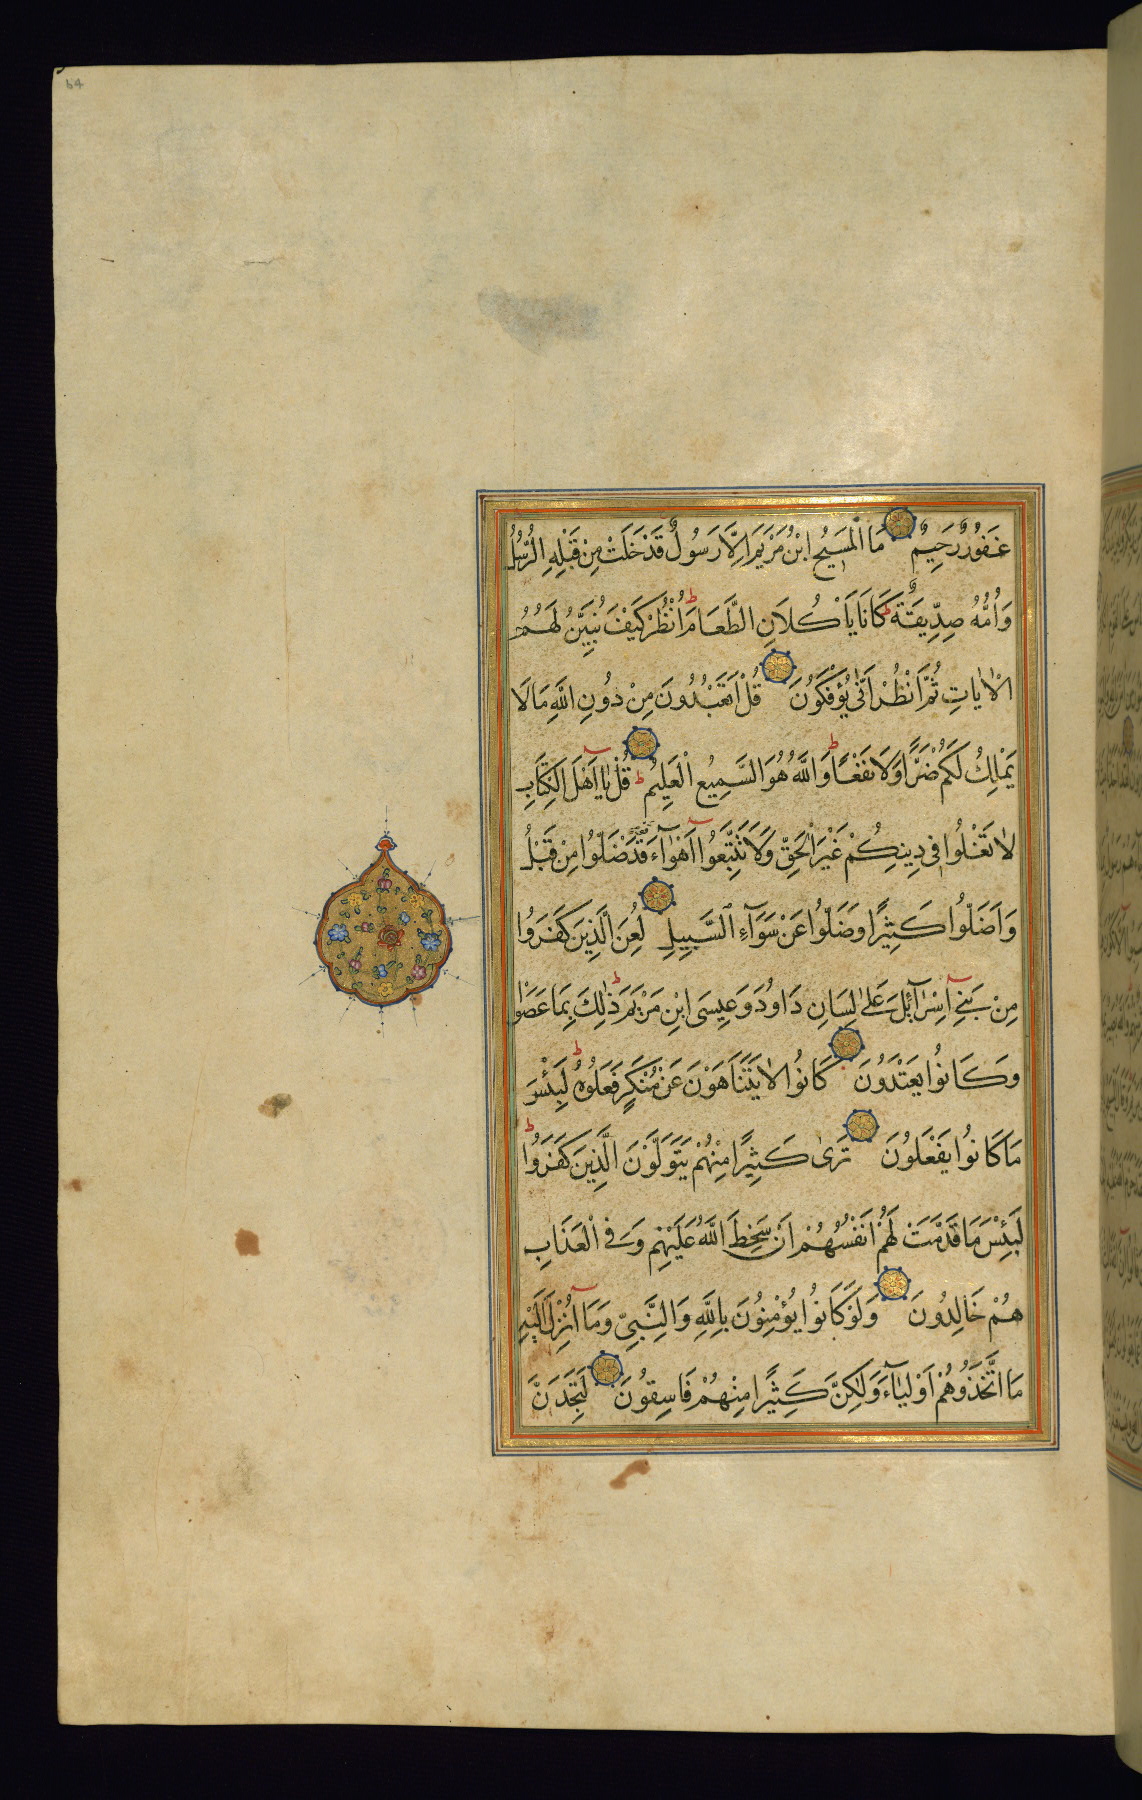 غَفُورٌ رَحِيمٌ مَا الْمَسِيحُ ابْنُ مَرْيَمَ اِلَّا رَسُولٌ قَدْ خَلَتْ مِنْ قَبْلِهِ الرُّسُلُ
وَاُمُّهُ صِدِّيقَةٌ ط كَانَا يَاْكُلَانِ الطَّعَامَ ط اُنْظُرْ كَيْفَ نُبَيِّنُ لَهُمُ
الْاٰيَاتِ ثُمَّ انْظُرْ اَنّٰى يُؤْفَكُونَ قُلْ اَتَعْبُدُونَ مِنْ دُونِ اللّٰهِ مَا لَا
يَمْلِكُ لَكُمْ ضَرًّا وَلَا نَفْعًا ط وَاللّٰهُ هُوَ السَّمِيعُ الْعَلِيمُ ط قُلْ يَا اَهْلَ الْكِتَابِ
لَا تَغْلُوا فِي دِينِكُمْ غَيْرَ الْحَقِّ وَلَا تَتَّبِعُوا اَهْوَاءَ قَدْ ضَلُّوا مِنْ قَبْلُ
وَاَضَلُّوا كَثِيرًا وَضَلُّوا عَنْ سَوَاءِ السَّبِيلِ لُعِنَ الَّذِينَ كَفَرُوا
مِنْ بَنِي اِسْرَائِلَ عَلٰى لِسَانِ دَاوُدَ وَعِيسَى ابْنِ مَرْيَمَ ط ذٰلِكَ بِمَا عَصَوْا
وَكَانُوا يَعْتَدُونَ كَانُوا لَا يَتَنَاهَوْنَ عَنْ مُنْكَرٍ فَعَلُوهُ ط لَبِئْسَ
مَا كَانُوا يَفْعَلُونَ تَرٰى كَثِيرًا مِنْهُمْ يَتَوَلَّوْنَ الَّذِينَ كَفَرُوا ط
لَبِئْسَ مَا قَدَّمَتْ لَهُمْ اَنْفُسُهُمْ اَنْ سَخِطَ اللّٰهُ عَلَيْهِمْ وَفِي الْعَذَابِ
هُمْ خَالِدُونَ وَلَوْ كَانُوا يُؤْمِنُونَ بِاللّٰهِ وَالنَّبِيِّ وَمَا اُنْزِلَ اِلَيْهِ
مَا اتَّخَذُوهُمْ اَوْلِيَاءَ وَلٰكِنَّ كَثِيرًا مِنْهُمْ فَاسِقُونَ لَتَجِدَنَّ